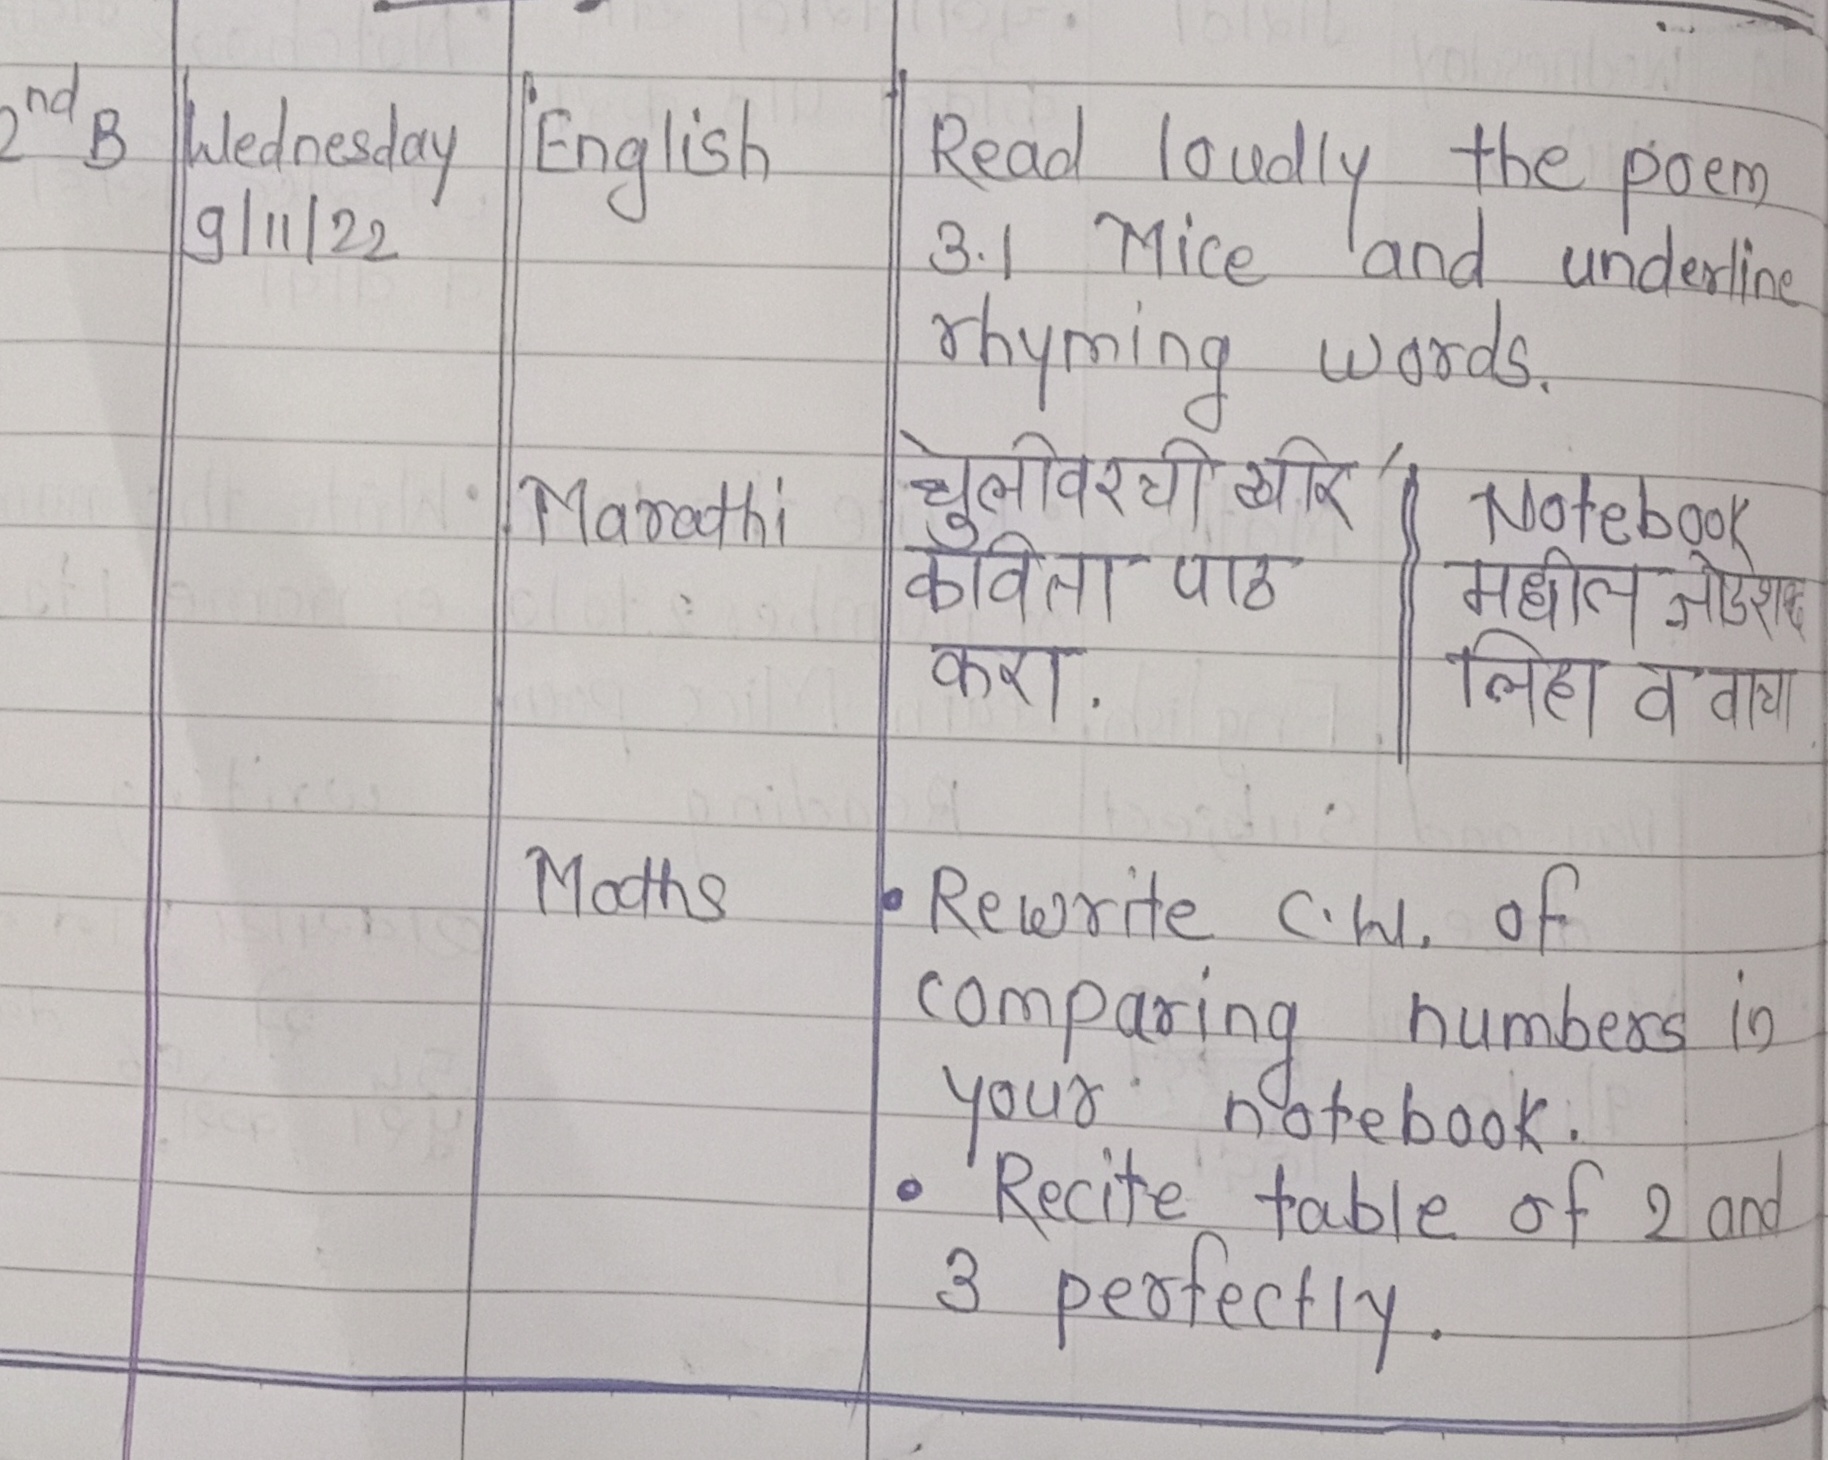 2nd B
Wednesday
9/11/22
English
Read loudly the poem
3.1 Mice and underline
rhyming words.
Marathi
चुलीवरची खीर
कविता पाठ
करा.
Notebook
मधील जोडशब्द
लिहा व वाचा
Maths
• Rewrite C.W. of
comparing numbers in
your notebook.
• Recite table of 2 and
3 perfectly.